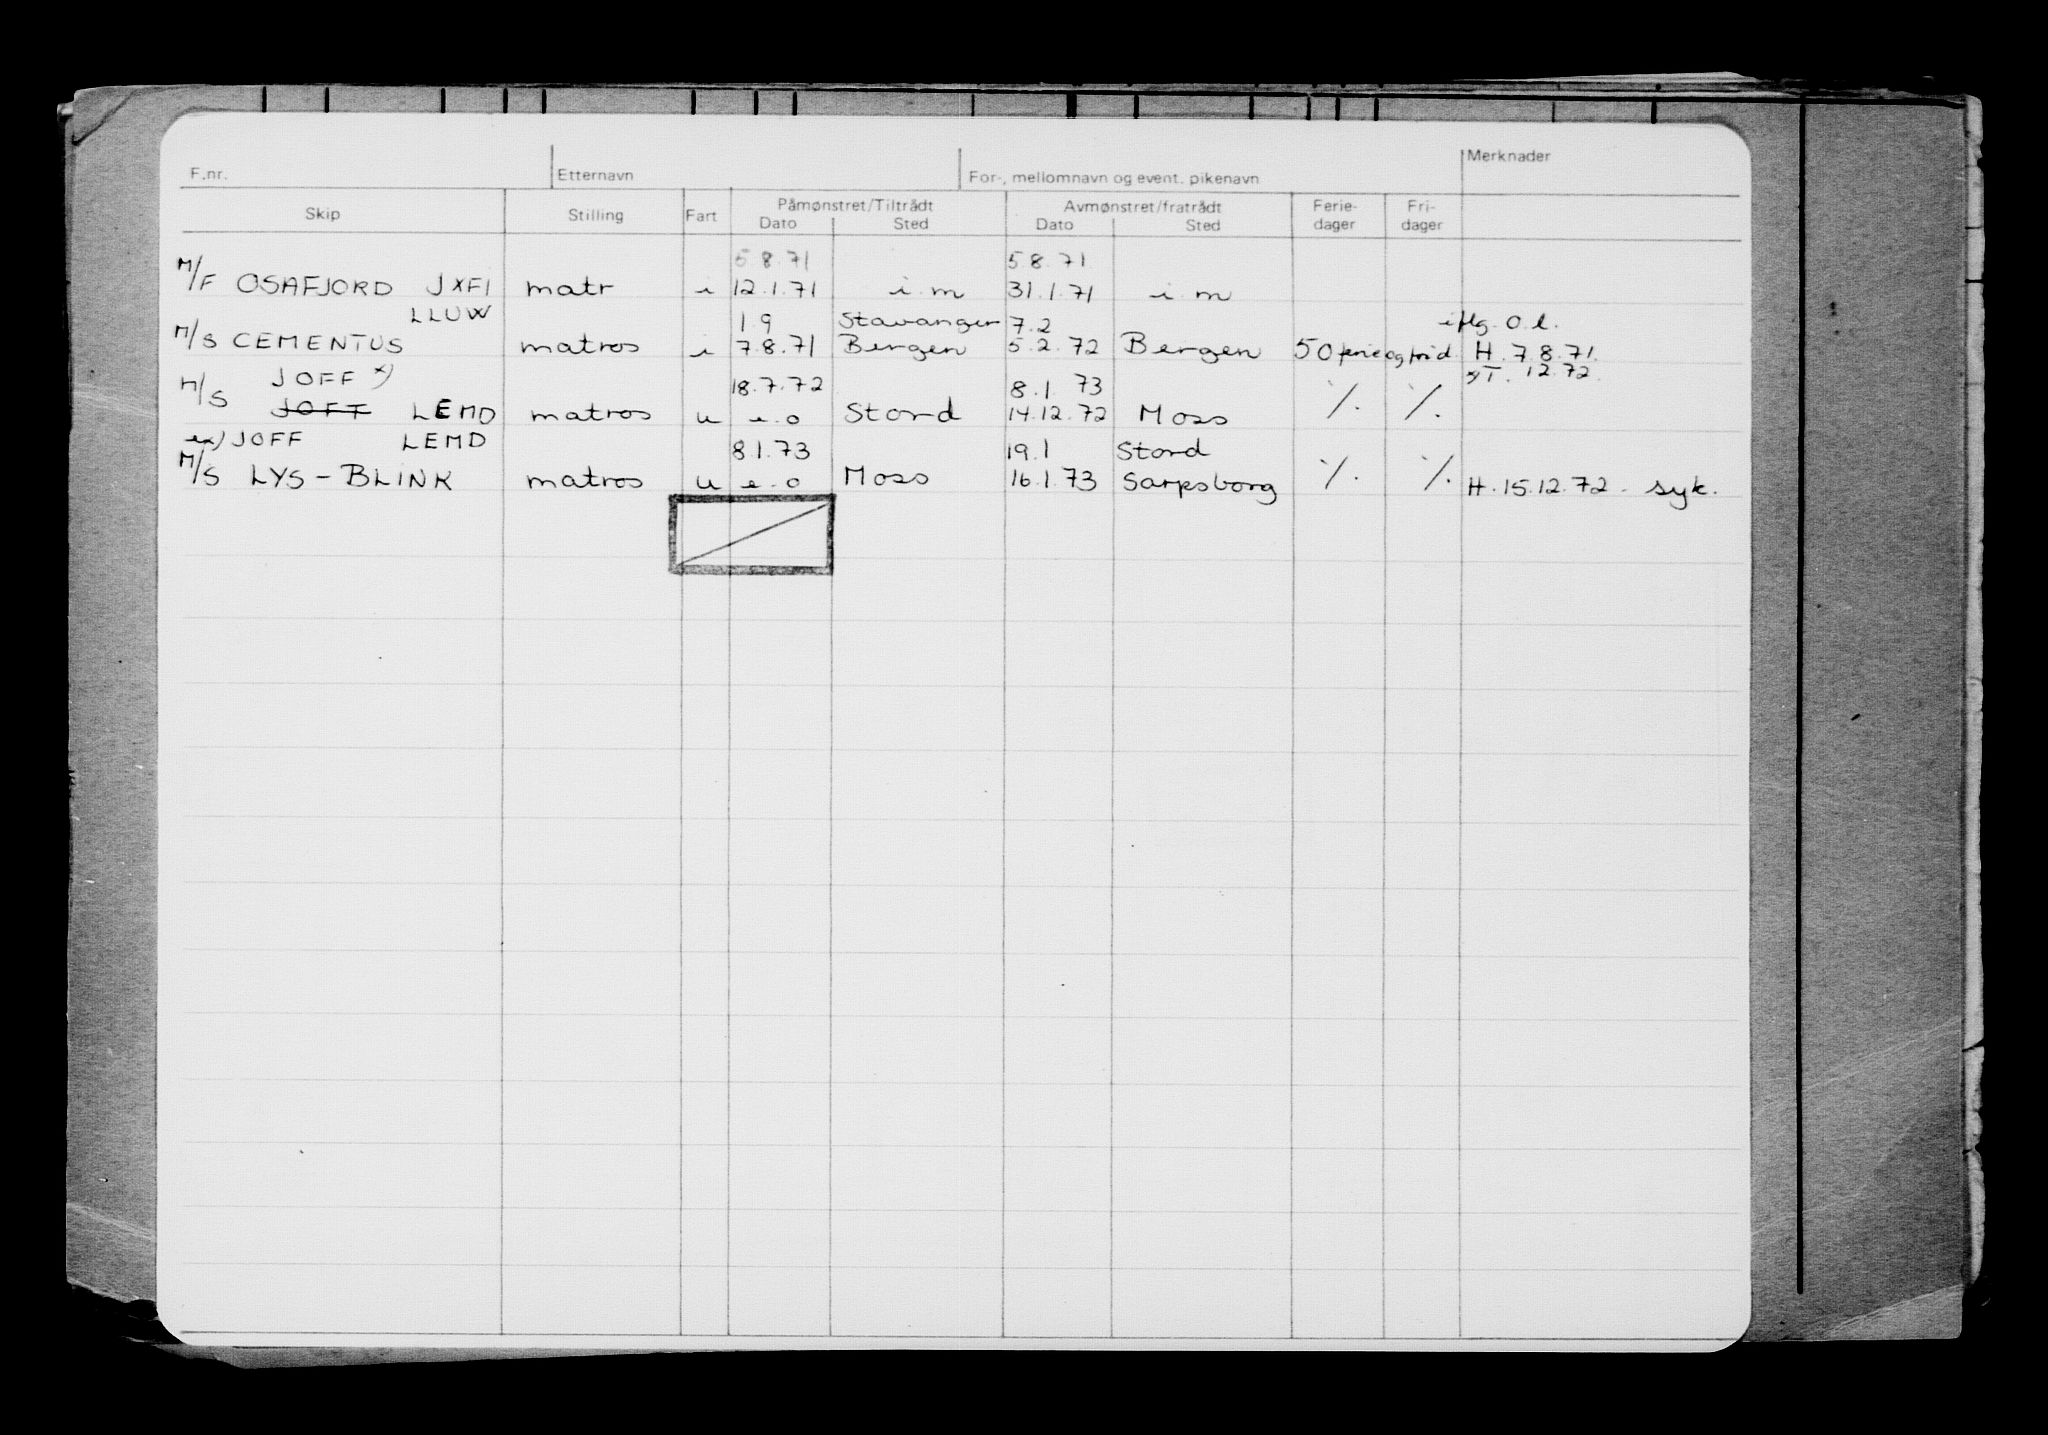 F.nr. Etternavn For-, mellomnavn og event. pikenavn Merknader
Skip Stilling Fart Påmønstret/Tiltrådt Avmønstret/fratrådt Ferie- Fri-
Dato Sted Dato Sted dager dager
5.8.71 5.8.71
M/F OSAFJORD JXFI matr i 12.1.71 i.m 31.1.71 i.m
LLUW 1.9 Stavanger 7.2 iflg. O.l.
M/S CEMENTUS matros i 7.8.71 Bergen 5.2.72 Bergen 50 ferie og frid. H. 7.8.71.
JOFF x) 18.7.72 8.1.73 x) T. 12.72.
M/S JOFT LEMD matros u e.o Stord 14.12.72 Moss ·/. ·/.
ex) JOFF LEMD 8.1.73 19.1 Stord
M/S LYS-BLINK matros u e.o Moss 16.1.73 Sarpsborg ·/. ·/. H.15.12.72. syk.